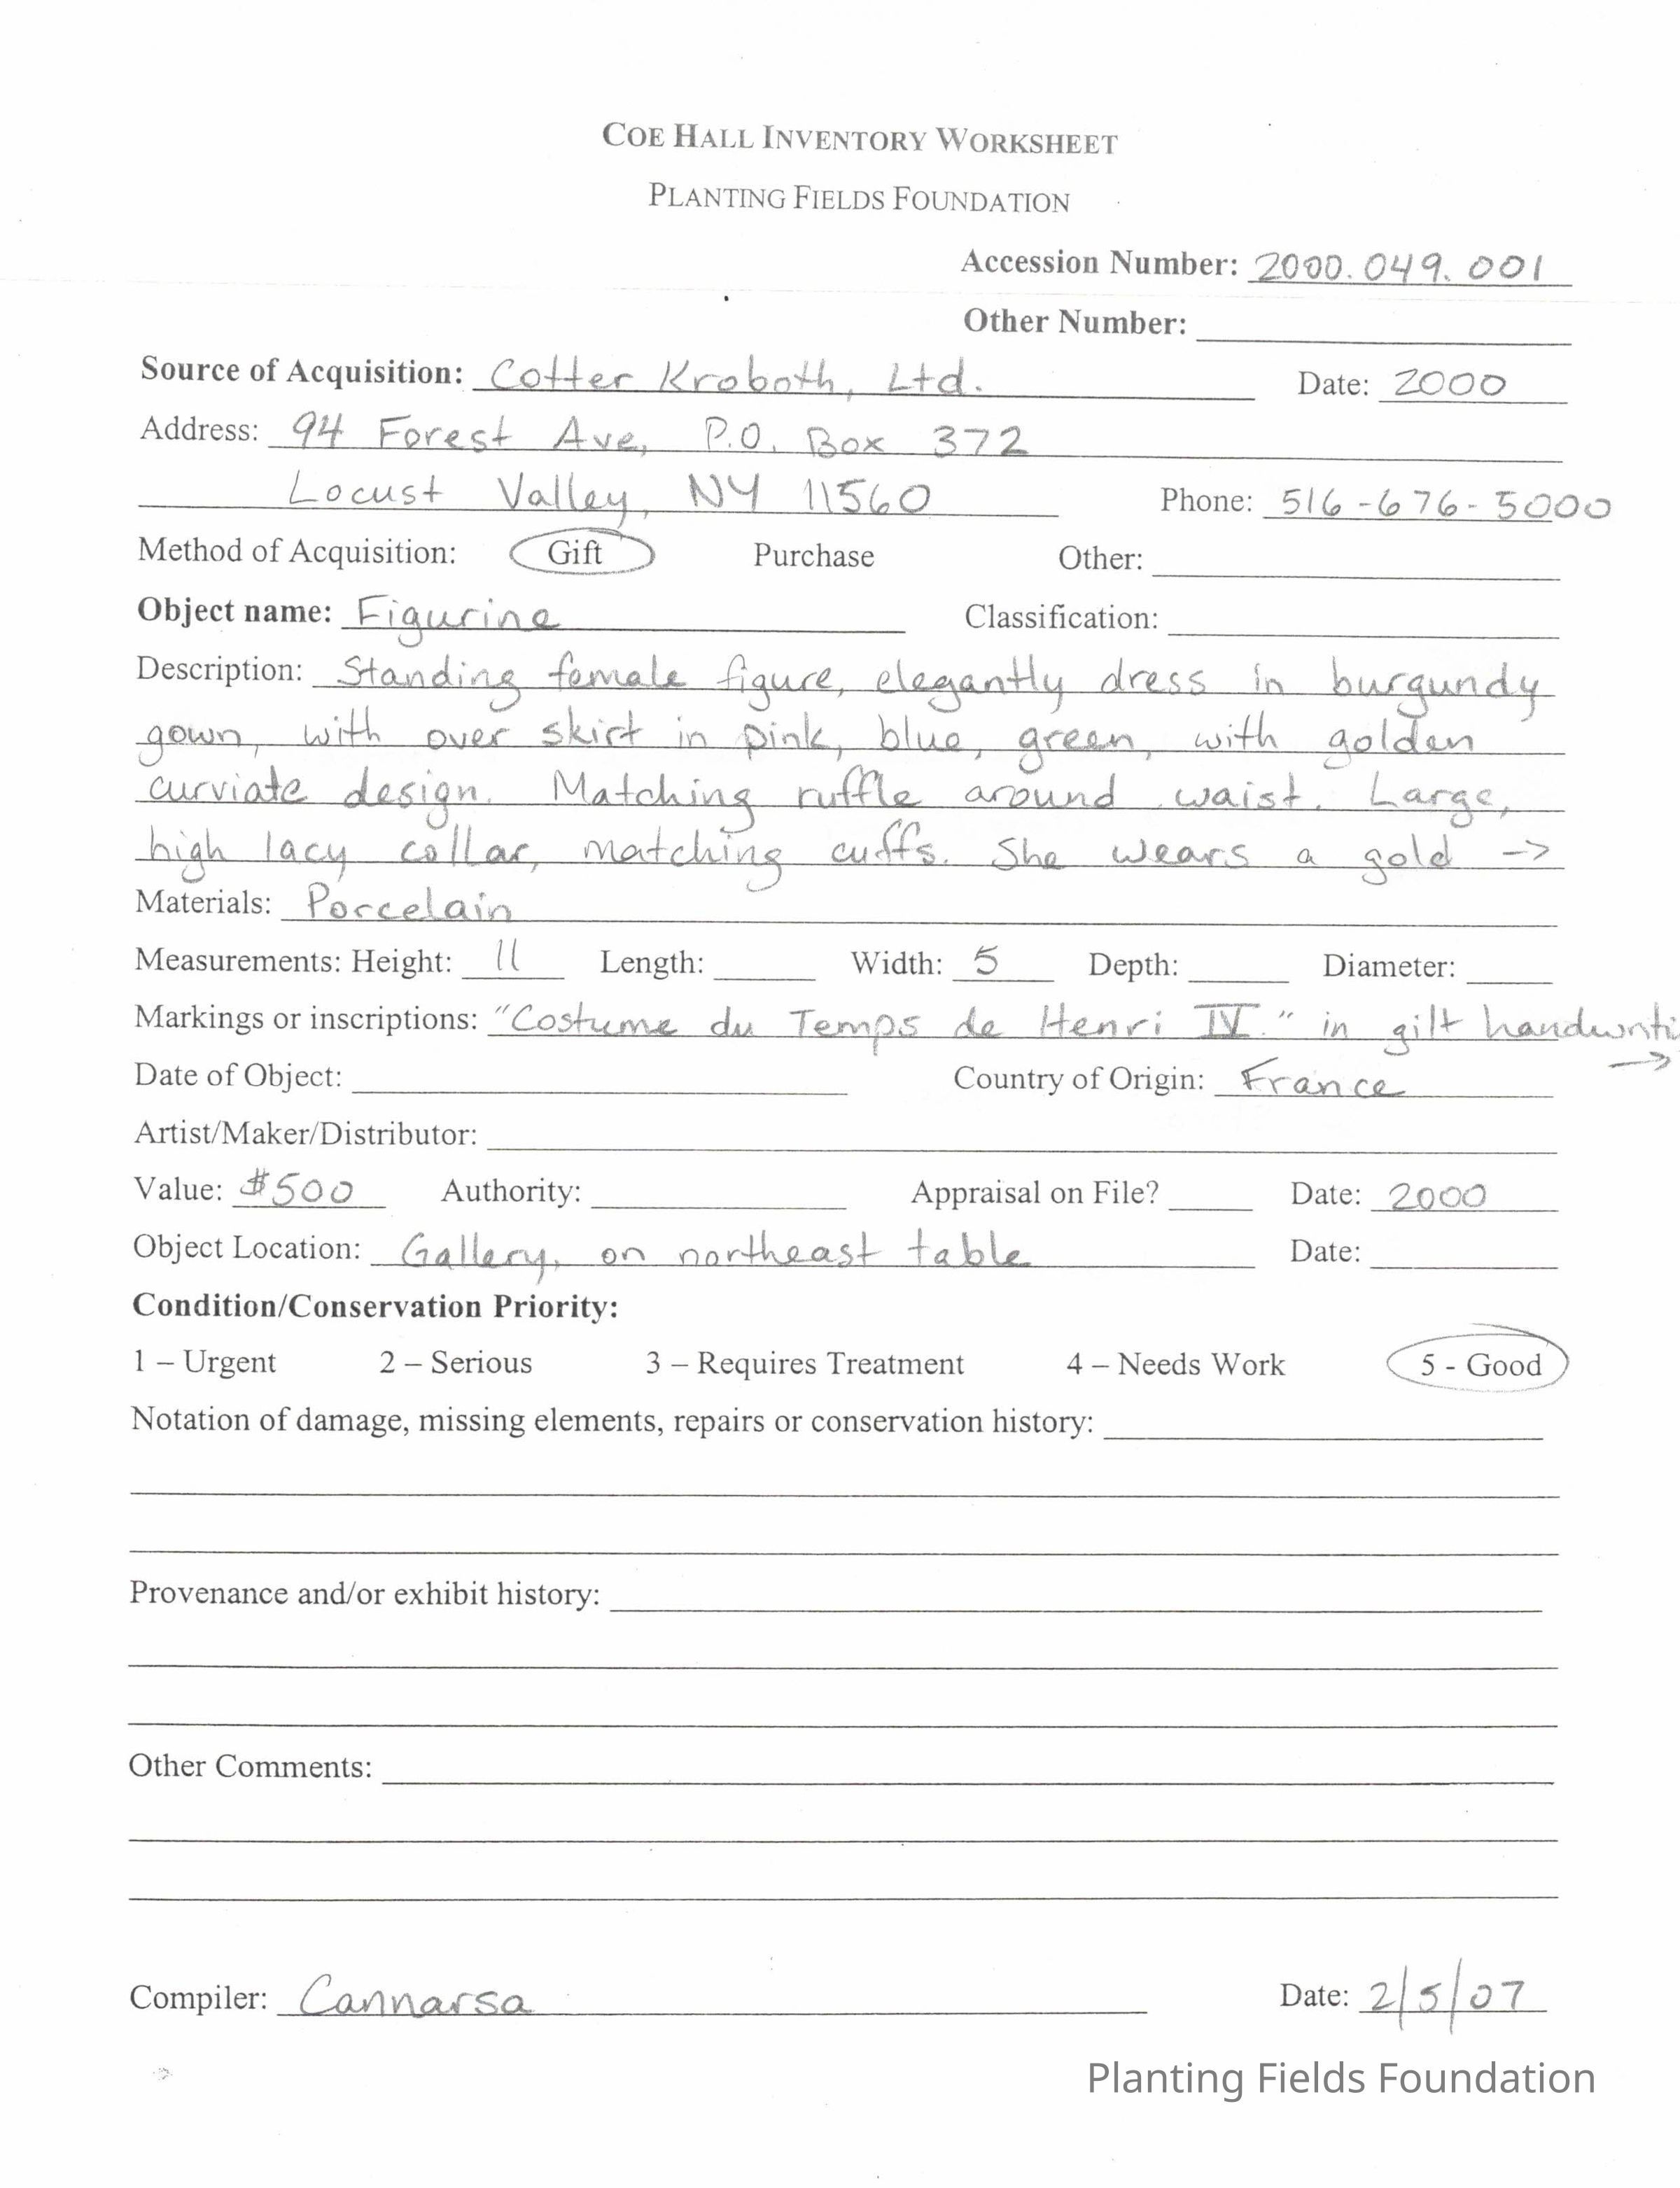 COE HALL INVENTORY WORKSHEET
PLANTING FIELDS FOUNDATION
Accession Number: 2000.049.001
Other Number:
Source of Acquisition: Cotter Kroboth, Ltd. Date: 2000
Address: 94 Forest Ave, P.O. Box 372
Locust Valley, NY 11560 Phone: 516-676-5000
Method of Acquisition: Gift Purchase Other:
Object name: Figurine Classification:
Description: Standing female figure, elegantly dress in burgundy
gown, with over skirt in pink, blue, green, with golden
curviate design. Matching ruffle around waist. Large,
high lacy collar, matching cuffs. She wears a gold ->
Materials: Porcelain
Measurements: Height: 11 Length: Width: 5 Depth: Diameter:
Markings or inscriptions: "Costume du Temps de Henri IV." in gilt
->
Date of Object: Country of Origin: France
Artist/Maker/Distributor:
Value: $500 Authority: Appraisal on File? Date: 2000
Object Location: Gallery, on northeast table Date:
Condition/Conservation Priority:
1 – Urgent 2 – Serious 3 – Requires Treatment 4 – Needs Work 5 - Good
Notation of damage, missing elements, repairs or conservation history:
Provenance and/or exhibit history:
Other Comments:
Compiler: Cannarsa Date: 2/5/07
Planting Fields Foundation